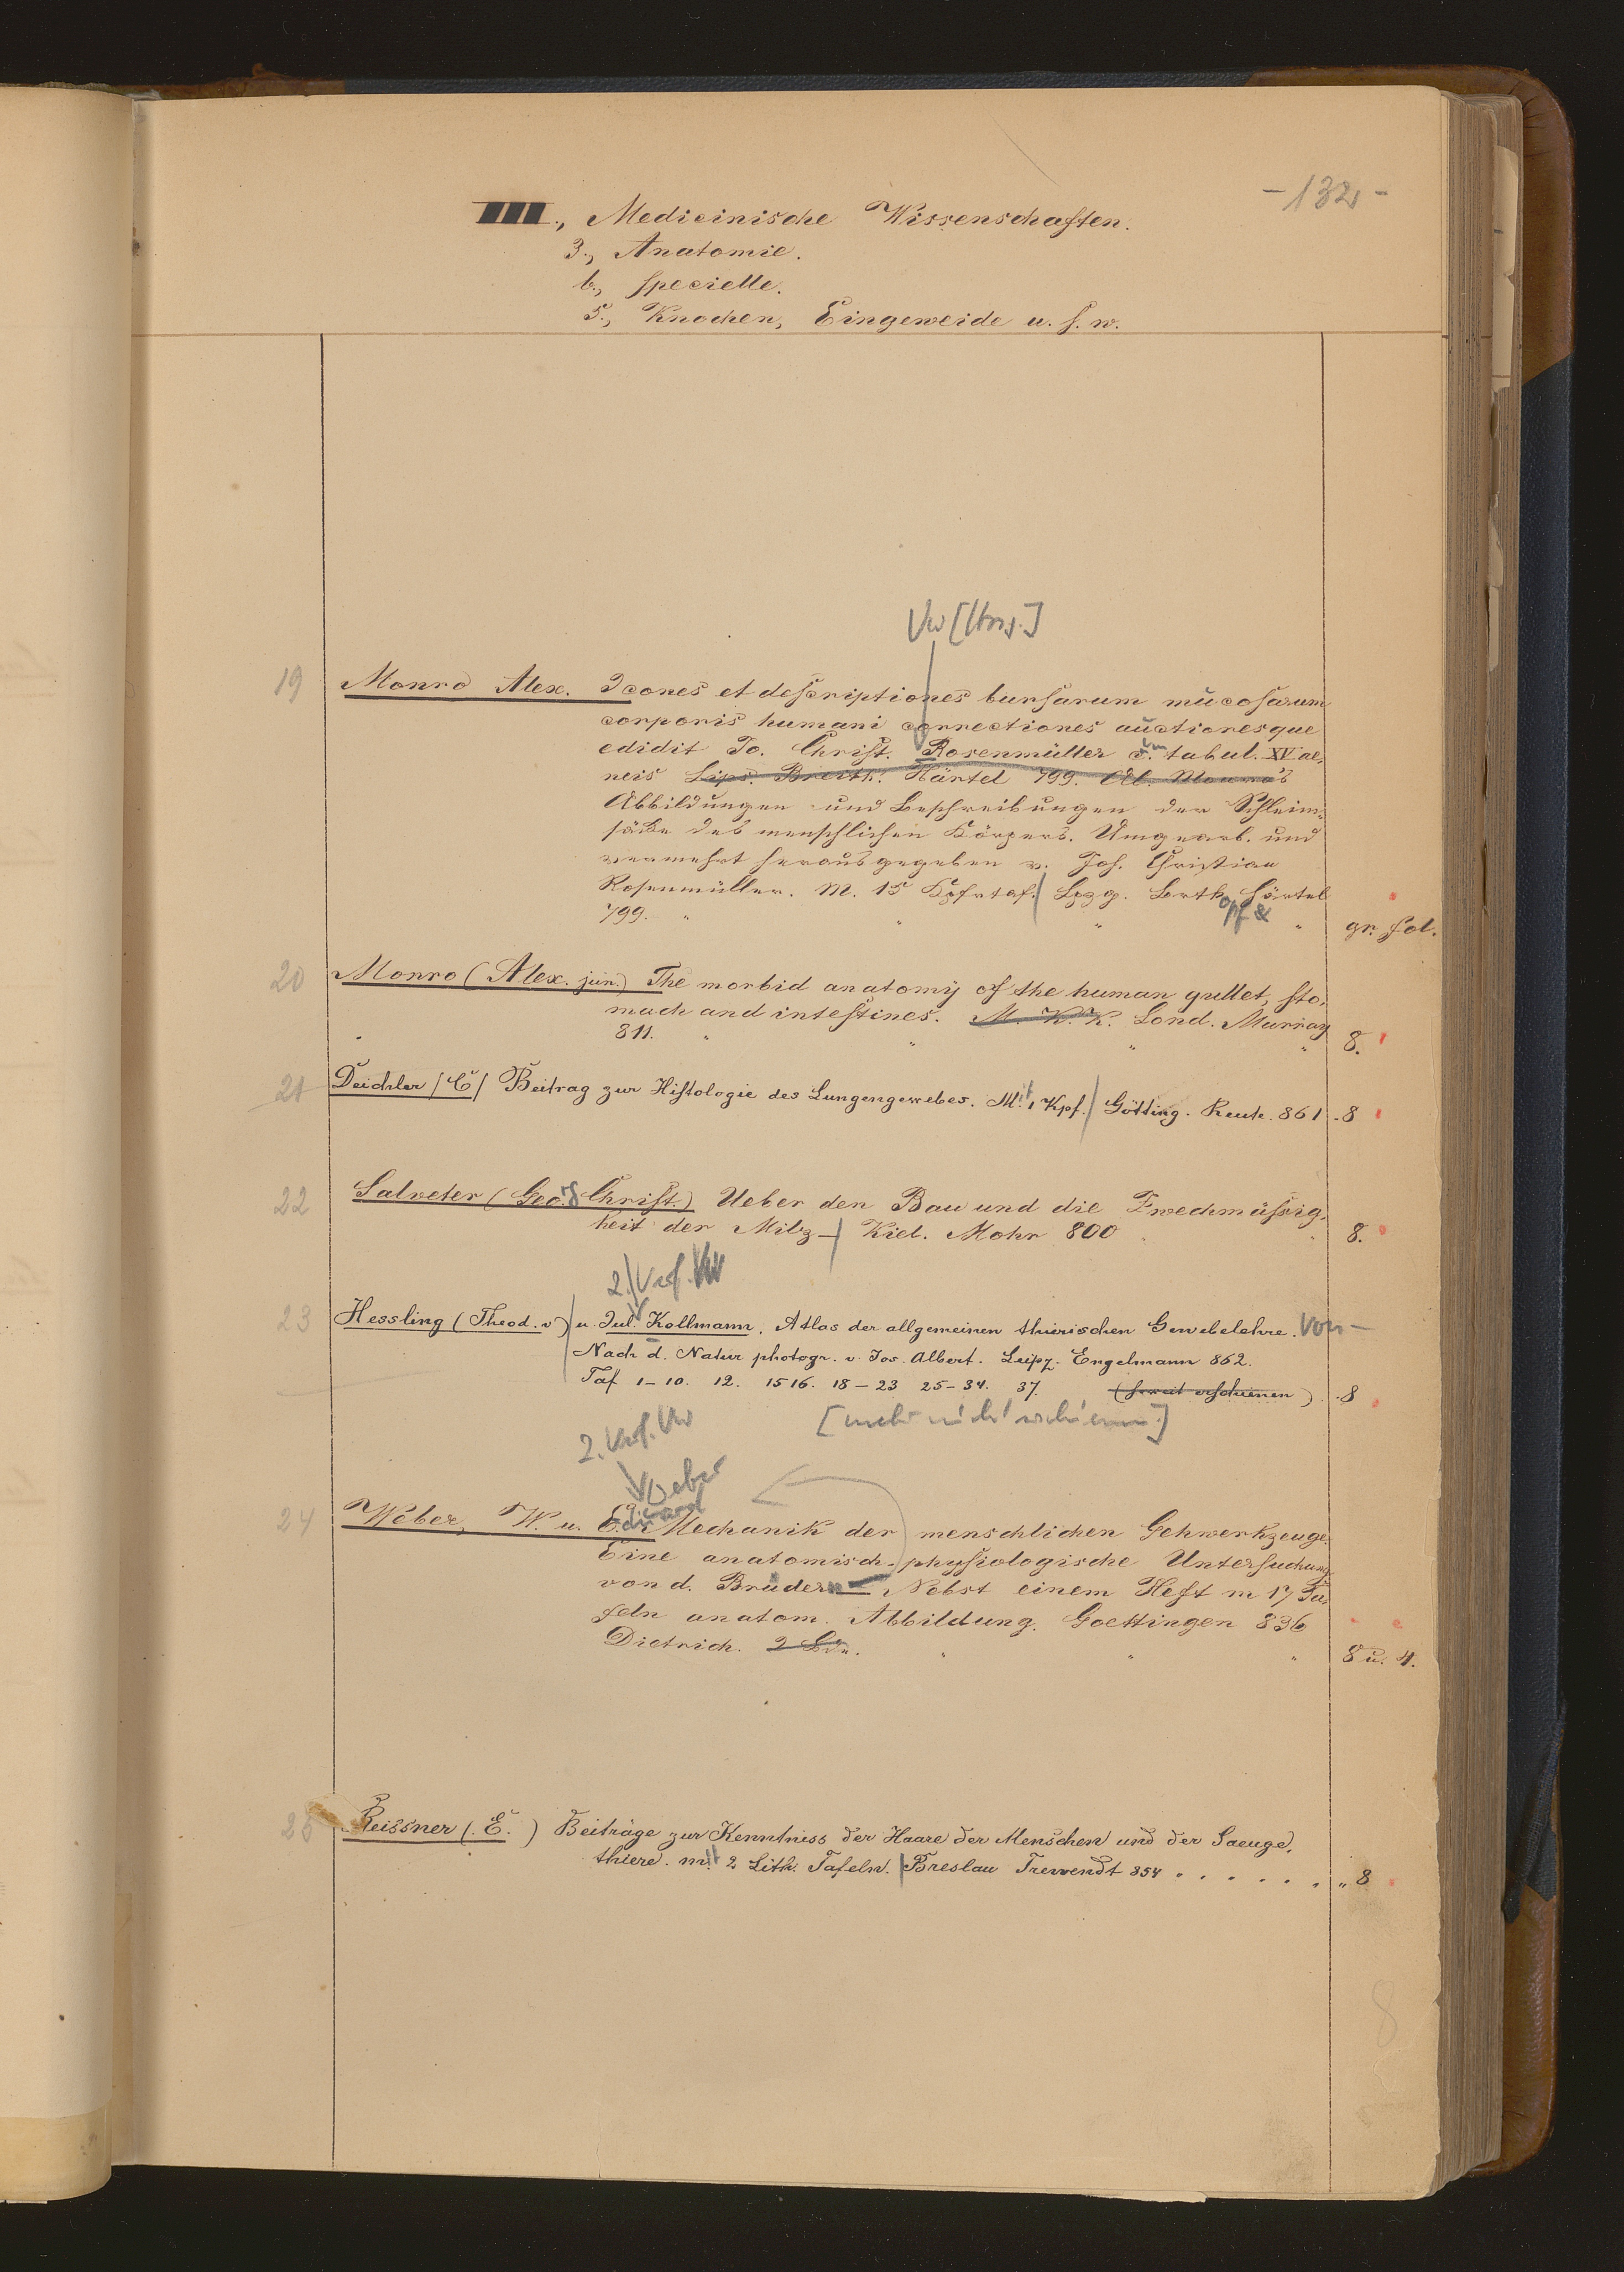 -132-
III., Medicinische Wissenschaften.
3., Anatomie.
b., specielle.
5., Knochen, Eingeweide u. s. w.
Vw [Hrsg.]
19 Monro Alex. Icones et descriptiones bursarum mucosarum
corporis humani correctiones auctioresque
edidit Jo. Christ. Rosenmüller cum tabul. XV ae-
neis Lips. Breitk. Härtel 799. Al. Monro's
Abbildungen und Beschreibungen der Schleim-
säcke des menschlichen Körpers. Umgearb. und
vermehrt herausgegeben v. Joh. Christian
Rosenmüller. M. 15 Kpfrtaf. Lpzg. Brtkopf & Härtel
799. " " " " gr. fol.
20 Monro (Alex. jun.) The morbid anatomy of the human gullet, sto-
mach and intestines. M. K. K. Lond. Murray
811. " " " " 8.
21 Deichler /C/ Beitrag zur Histologie des Lungengewebes. Mit 1 Kpf. Götting. Rente. 861 . 8
22 Salveter (Georg Christ.) Ueber den Bau und die Zweckmässig-
keit der Milz – Kiel. Mohr 800 " 8.
2. Verf. Vw
23 Hessling (Theod. v) u. Jul. Kollmann. Atlas der allgemeinen thierischen Gewebelehre. Von –
Nach d. Natur photogr. v. Jos. Albert. Leipz. Engelmann 862.
Taf 1–10. 12. 15 16. 18–23 25–34. 37. (soweit erschienen) . 8
[mehr nicht erschienen.]
2. Verf. Vw
Weber
24 Weber, W. u. Eduard Mechanik der menschlichen Gehwerkzeuge.
Eine anatomisch-physiologische Untersuchung
von d. Brüdern – Nebst einem Heft m 17 Ta-
feln anatom. Abbildung. Goettingen 836
Dietrich. 2 Bde. " " " 8 u. 4.
25 Reissner (E.) Beiträge zur Kenntniss der Haare der Menschen und der Saeuge-
thiere. mit 2 Lith. Tafeln. Breslau Trewendt 854 " . . . . . " 8
8